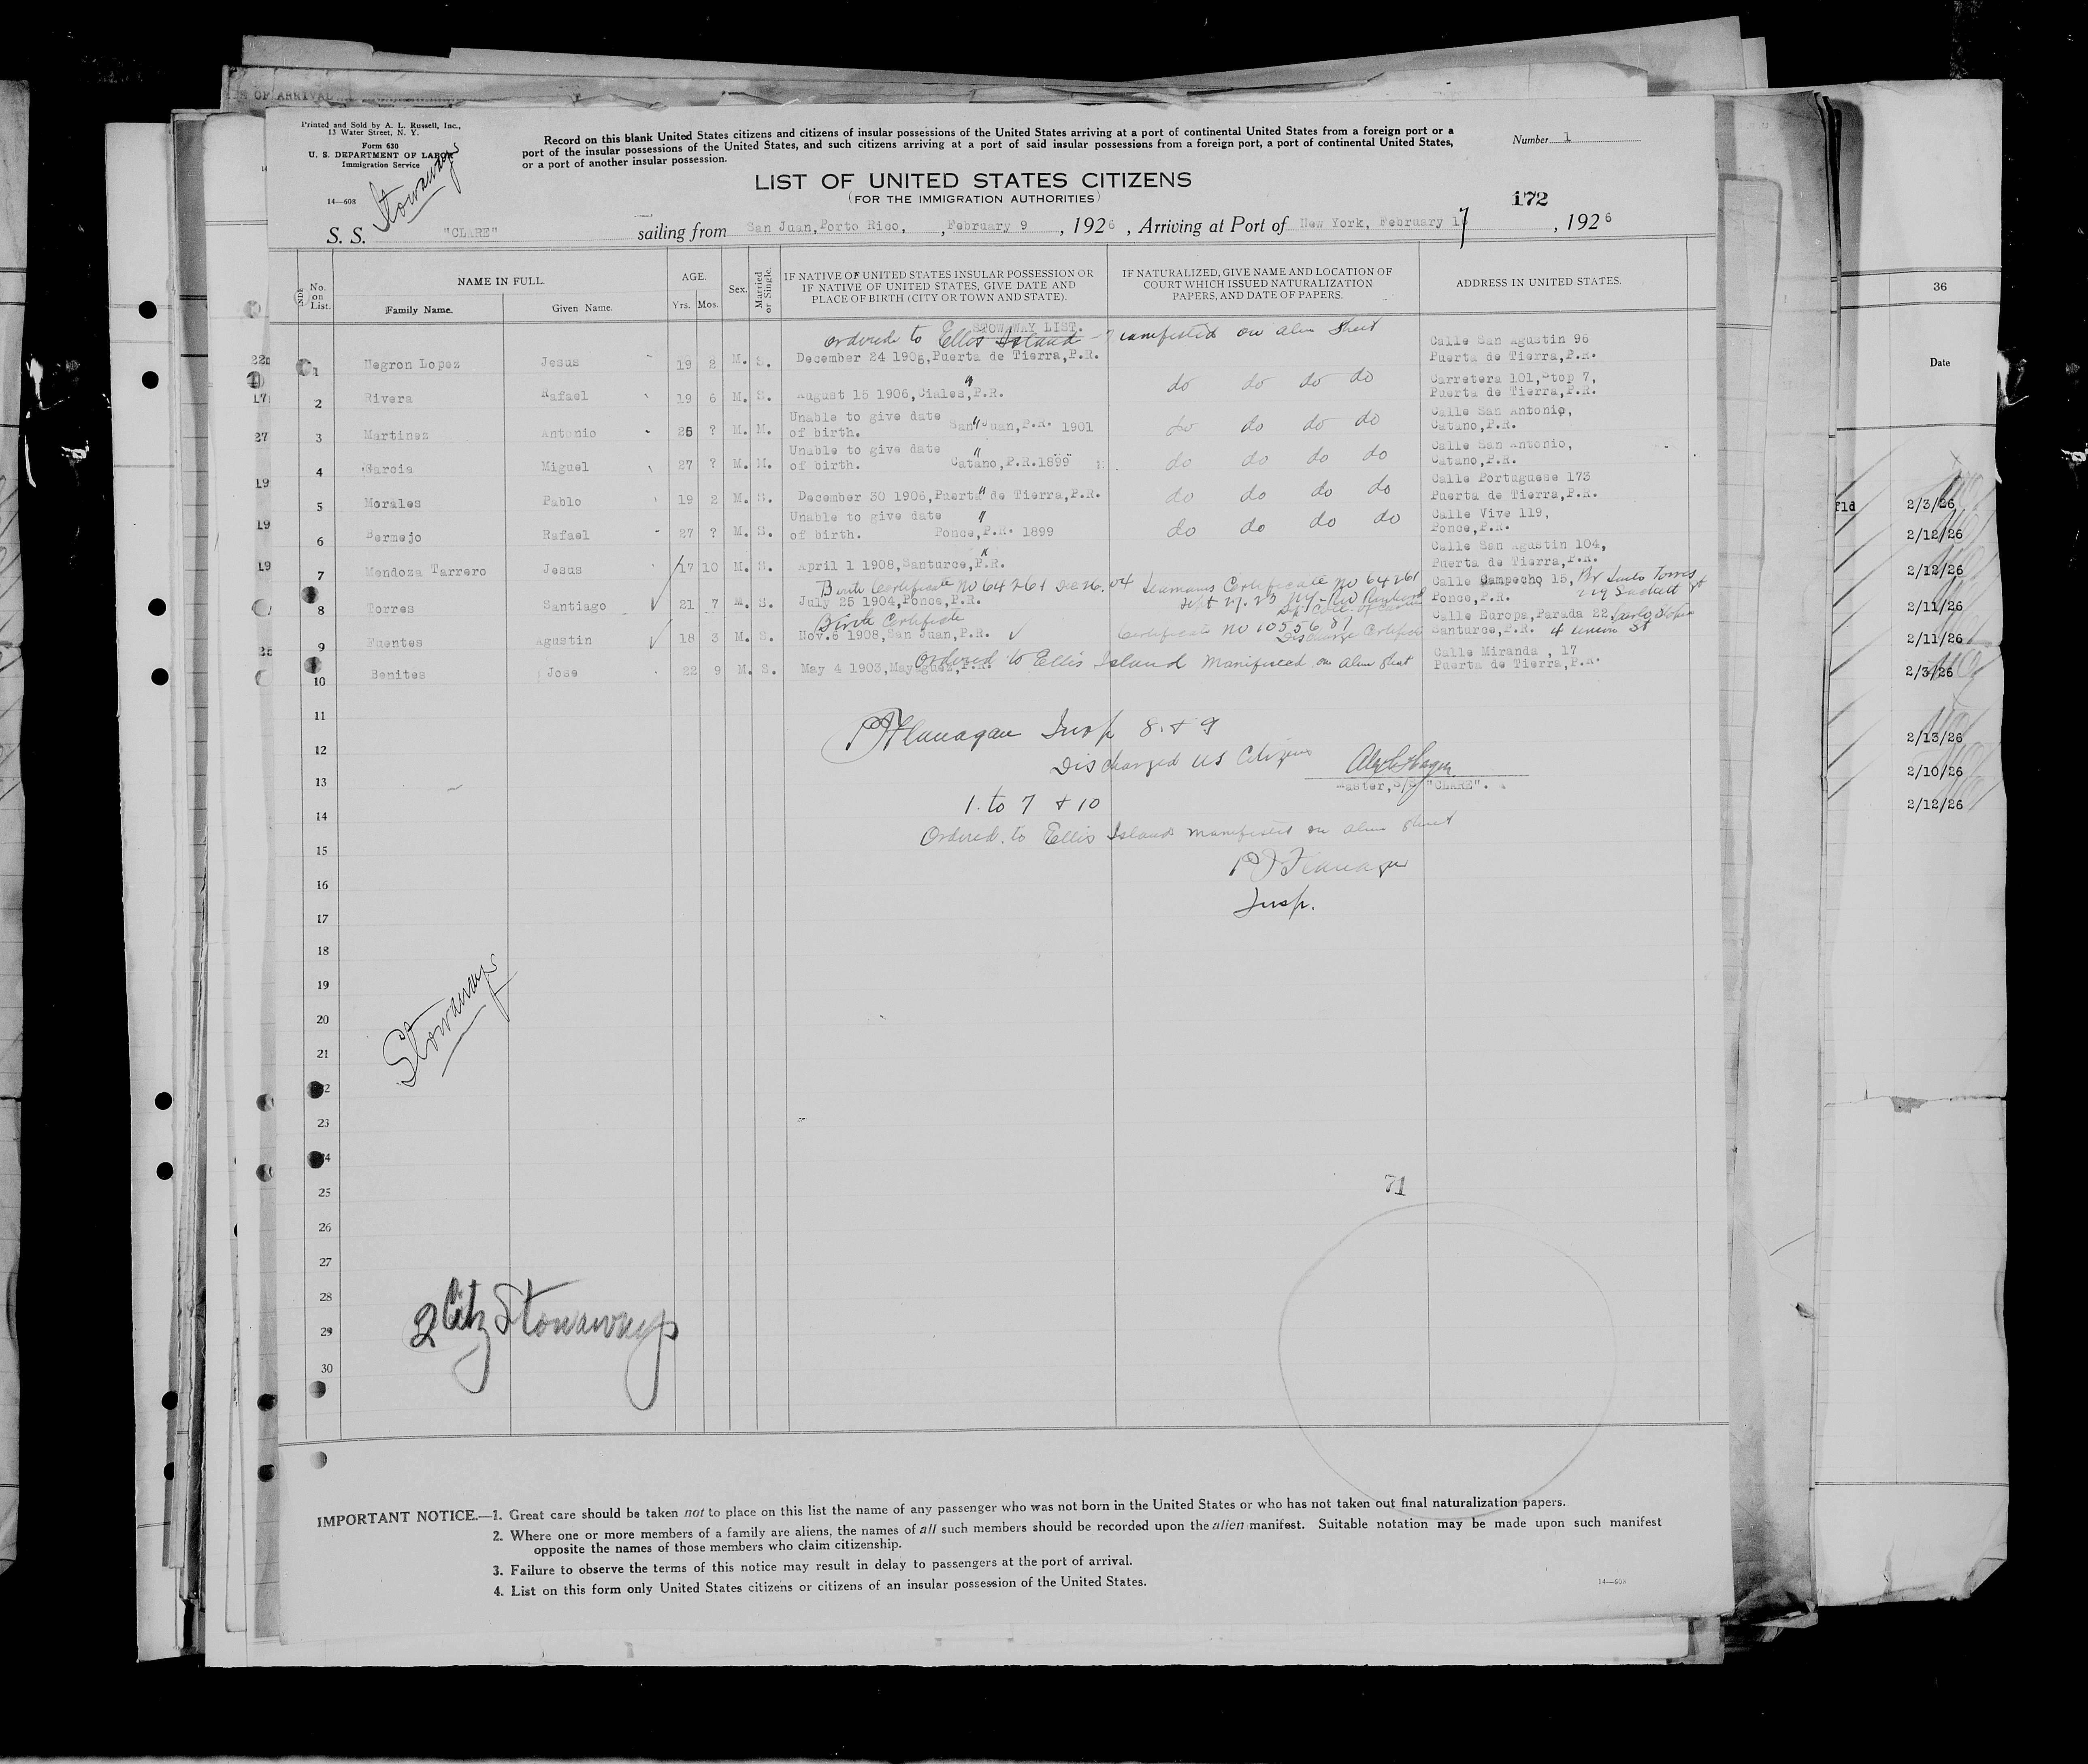 S OF ARRIVAL
Printed and Sold by A. L. Russell, Inc.,
13 Water Street, N. Y.
Form 630
U. S. DEPARTMENT OF LABOR
Immigration Service
14—608
Stowaways
Record on this blank United States citizens and citizens of insular possessions of the United States arriving at a port of continental United States from a foreign port or a
port of the insular possessions of the United States, and such citizens arriving at a port of said insular possessions from a foreign port, a port of continental United States,
or a port of another insular possession.
Number 1
LIST OF UNITED STATES CITIZENS
(FOR THE IMMIGRATION AUTHORITIES)
172
S. S. "CLARE" sailing from San Juan, Porto Rico, , February 9 , 1926 , Arriving at Port of New York, February 17 , 1926
No. on List. NAME IN FULL. AGE. Sex. Married or Single. IF NATIVE OF UNITED STATES INSULAR POSSESSION OR IF NATIVE OF UNITED STATES, GIVE DATE AND PLACE OF BIRTH (CITY OR TOWN AND STATE). IF NATURALIZED, GIVE NAME AND LOCATION OF COURT WHICH ISSUED NATURALIZATION PAPERS, AND DATE OF PAPERS. ADDRESS IN UNITED STATES.
Family Name. Given Name. Yrs. Mos.
STOWAWAY LIST.
Ordered to Ellis Island - manifested on alien sheet
1 Negron Lopez Jesus 19 2 M. S. December 24 1906, Puerta de Tierra, P.R. Calle San Agustin 96 Puerta de Tierra, P.R.
2 Rivera Rafael 19 6 M. S. August 15 1906, Ciales, P.R. " do do do do Carretera 101, Stop 7, Puerta de Tierra, P.R.
3 Martinez Antonio 25 ? M. M. Unable to give date of birth. San Juan, P.R. 1901 " do do do do Calle San Antonio, Catano, P.R.
4 Garcia Miguel 27 ? M. M. Unable to give date of birth. Catano, P.R. 1899 " do do do do Calle San Antonio, Catano, P.R.
5 Morales Pablo 19 2 M. S. December 30 1906, Puerta de Tierra, P.R. " do do do do Calle Portuguese 173 Puerta de Tierra, P.R.
6 Bermejo Rafael 27 ? M. S. Unable to give date of birth. Ponce, P.R. 1899 " do do do do Calle Vive 119, Ponce, P.R.
7 Mendoza Tarrero Jesus 17 10 M. S. April 1 1908, Santurce, P.R. " Calle San Agustin 104, Puerta de Tierra, P.R.
Birth Certificate No 64261 Dec 26, 04 Seamans Certificate No 64261
8 Torres Santiago 21 7 M. S. July 25 1904, Ponce, P.R. Sept 27. 23 NY Calle Campecho 15, Ponce, P.R. Torres
Birth Certificate
9 Fuentes Agustin 18 3 M. S. Nov. 6 1908, San Juan, P.R. Certificate No 1055687 Discharge Certificate Calle Europa, Parada 22, Santurce, P.R. 4 Union St
Ordered to Ellis Island Manifested on alien sheet
10 Benites Jose 22 9 M. S. May 4 1903, Mayaguez, P.R. Calle Miranda , 17 Puerta de Tierra, P.R.
11
P J Flanagan Insp 8 + 9
12
Discharged US Citizens
13
Master, S/S "CLARE".
1 to 7 + 10
14
Ordered to Ellis Island manifested on alien sheet
15
P J Flanagan
16
Insp.
17
18
19
Stowaways
20
21
22
23
24
25
71
26
27
28
2 Citz Stowaways
29
30
IMPORTANT NOTICE.—1. Great care should be taken not to place on this list the name of any passenger who was not born in the United States or who has not taken out final naturalization papers.
2. Where one or more members of a family are aliens, the names of all such members should be recorded upon the alien manifest. Suitable notation may be made upon such manifest
opposite the names of those members who claim citizenship.
3. Failure to observe the terms of this notice may result in delay to passengers at the port of arrival.
4. List on this form only United States citizens or citizens of an insular possession of the United States.
14—608
36
Date
2/3/26
2/12/26
2/12/26
2/11/26
2/11/26
2/3/26
2/13/26
2/10/26
2/12/26